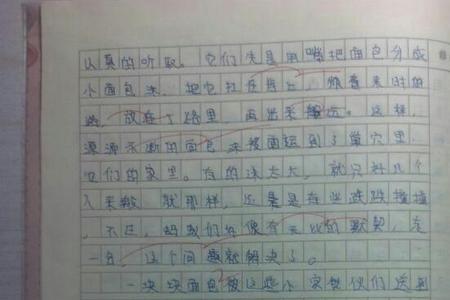 认真的听取。它们先是用嘴把面包分成
小面包末,把它扛在背上,顺着来时的
路,放在了路里,再出来搬运。这样,
源源不断的面包末被面运到了巢穴里
它们的家里。有的沫太大,就只好几个
人来搬,就那样,还是是在些跌跌撞撞
,不过,蚂蚁们好像有无比的默契,左
一分,这个问题就解决了。
一块块面包被这些小家伙们送到